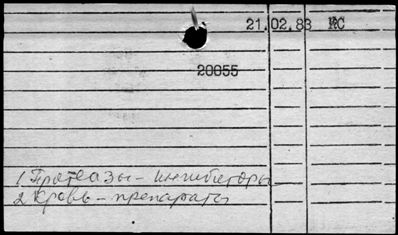 21.02.83 КС
20055
1 Протеазы – ингибиторы
2 Кровь – препараты